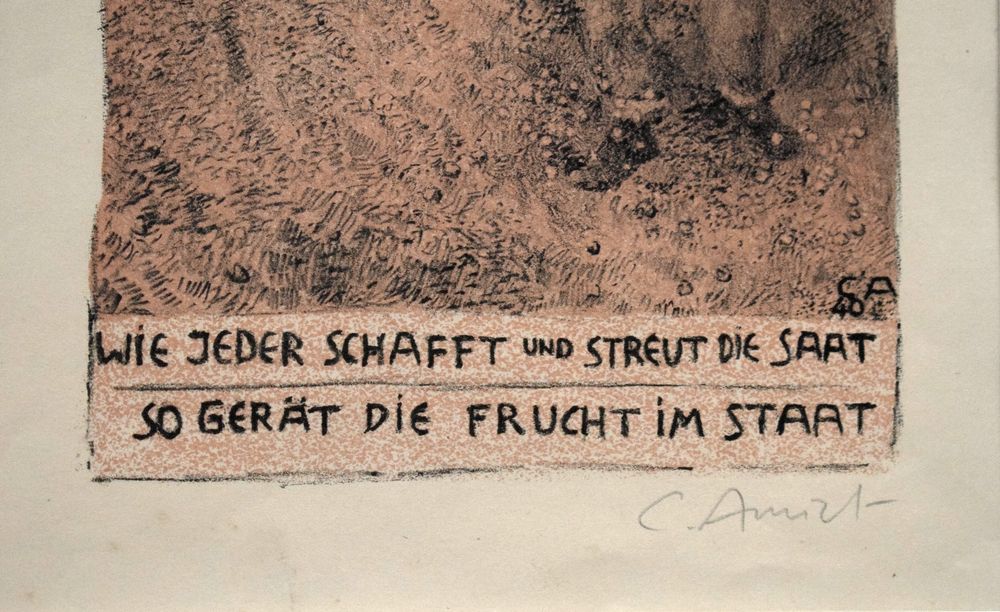 WIE JEDER SCHAFFT UND STREUT DIE SAAT
SO GERÄT DIE FRUCHT IM STAAT
C. Amiet